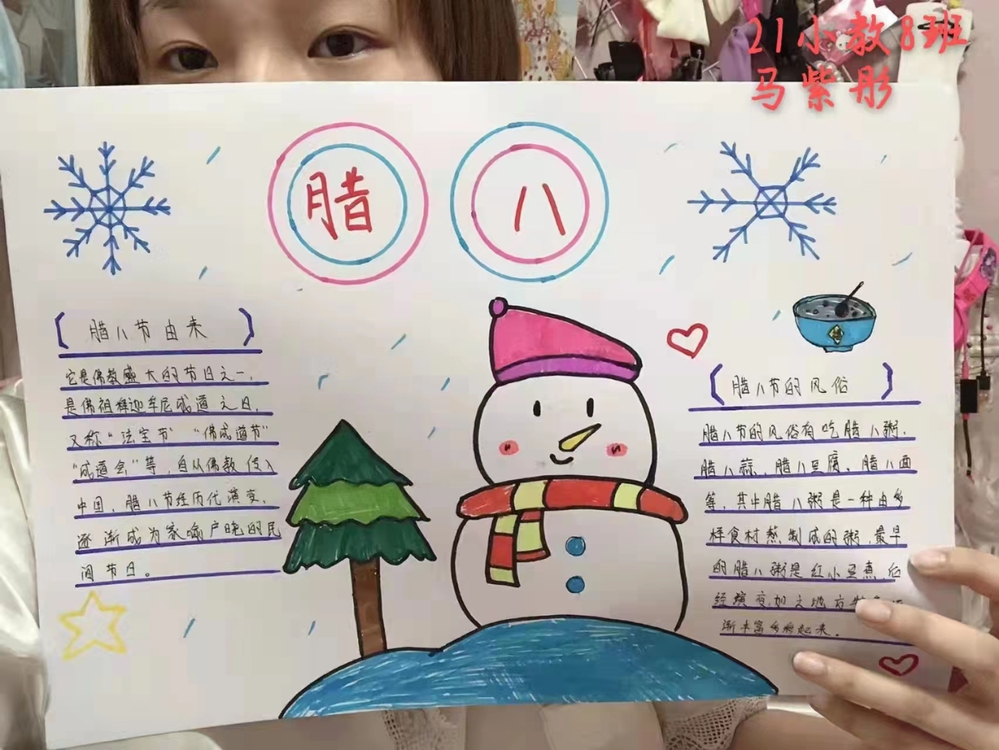 21小教8班
马紫彤
腊八
腊八节由来
它是佛教盛大的节日之一，
是佛祖释迦牟尼成道之日，
又称“法宝节”“佛成道节”
“成道会”等，自从佛教传入
中国，腊八节经历代演变，
逐渐成为家喻户晓的民
间节日。
腊八节的风俗
腊八节的风俗有吃腊八粥，
腊八蒜、腊八豆腐，腊八面
等，其中腊八粥是一种由多
样食材熬制成的粥，最早
的腊八粥是红小豆煮，后
经演变加之地方特
渐丰富多彩起来。